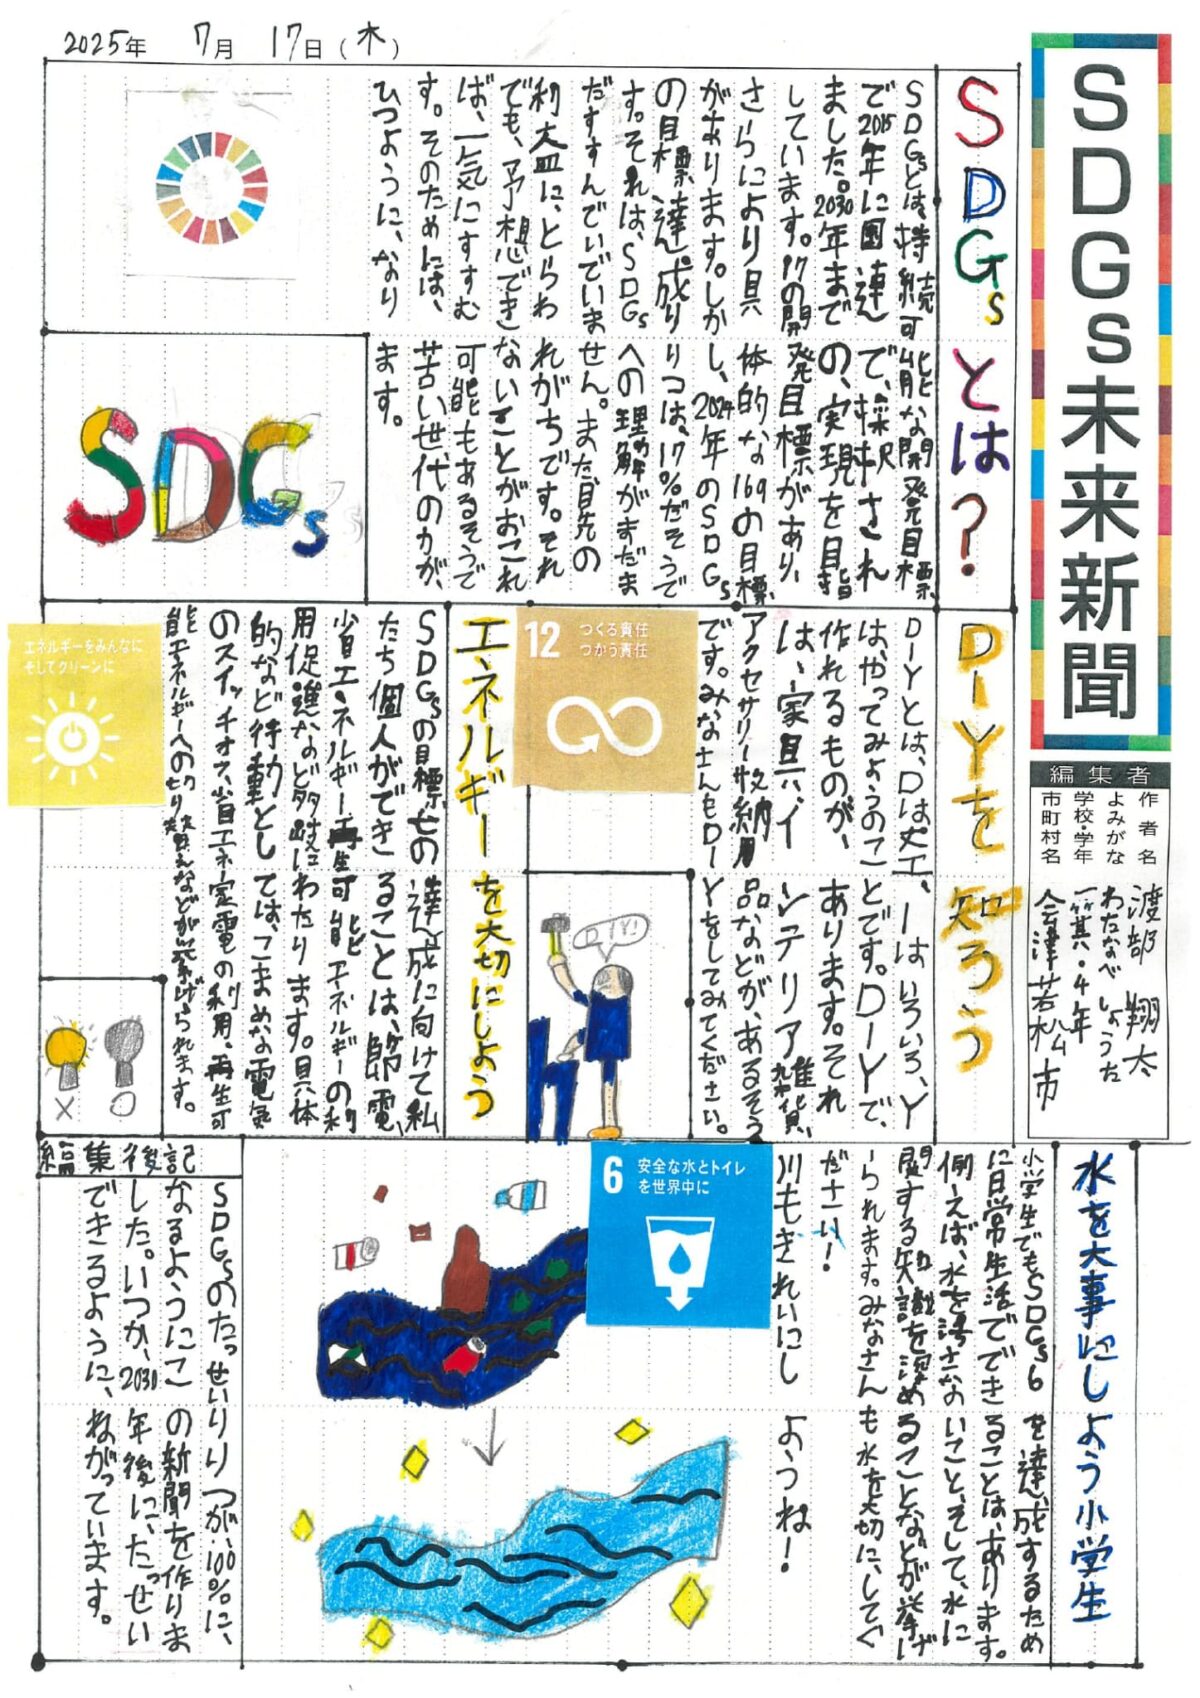 2025年 7月 17日(木)
SDGs未来新聞
編集者
作者名 渡部 翔太
よみがな わたなべ しょうた
学校・学年 一箕・4年
市町村名 会津若松市
SDGsとは?
SDGsとは、持続可能な開発目標
で2015年に国連で、採択され
ました。2030年までの、実現を目指
しています。17の開発目標があり、
さらにより具体的な169の目標
があります。しかし、2024年のSDGs
の目標達成りりつは、17%だそうで
す。それは、SDGsへの理解がまだま
だすすんでいでいません。まだ目先の
利益に、とらわれがちです。それ
でも、予想できないことがおこれ
ば、一気にすすむ可能もあるそうで
す。そのためには、苦い世代の力が、
ひつように、なります。
SDGs
DIYを知ろう
DIYとは、Dは丈工、Iはいろいろ、Y
はやってみようのことです。DIYで、
作れるものが、あります。それ
は、家具、インテリア雑貨、
アクセサリー収納用品などが、あるそう
です。みなさんもDIYをしてみてください。
12 つくる責任
つかう責任
DIY!
エネルギーを大切にしよう
SDGsの目標七の達成に向けて私
たち個人ができることは、節電、
省エネルギー、再生可能エネルギーの利
用促進など多岐にわたります。具体
的など行動としては、こまめな電気
のスイッチオフ、省エネ家電の利用、再生可
能エネルギーへの切り替えなどが挙げられます。
エネルギーをみんなに
そしてクリーンに
水を大事にしよう小学生
小学生でもSDGs6を達成するため
に日常生活でできることは、あります。
例えば、水を汚さないこと、そして、水に
関する知識を深めることなどが挙げ
られます。みなさんも水を大切に、してく
ださい!
川もきれいにしようね!
6 安全な水とトイレ
を世界中に
編集後記
SDGsのたっせいりりつが、100%に、
なるようにこの新聞を作りま
した。いつか、2030年後に、たっせい
できるように、ねがっています。